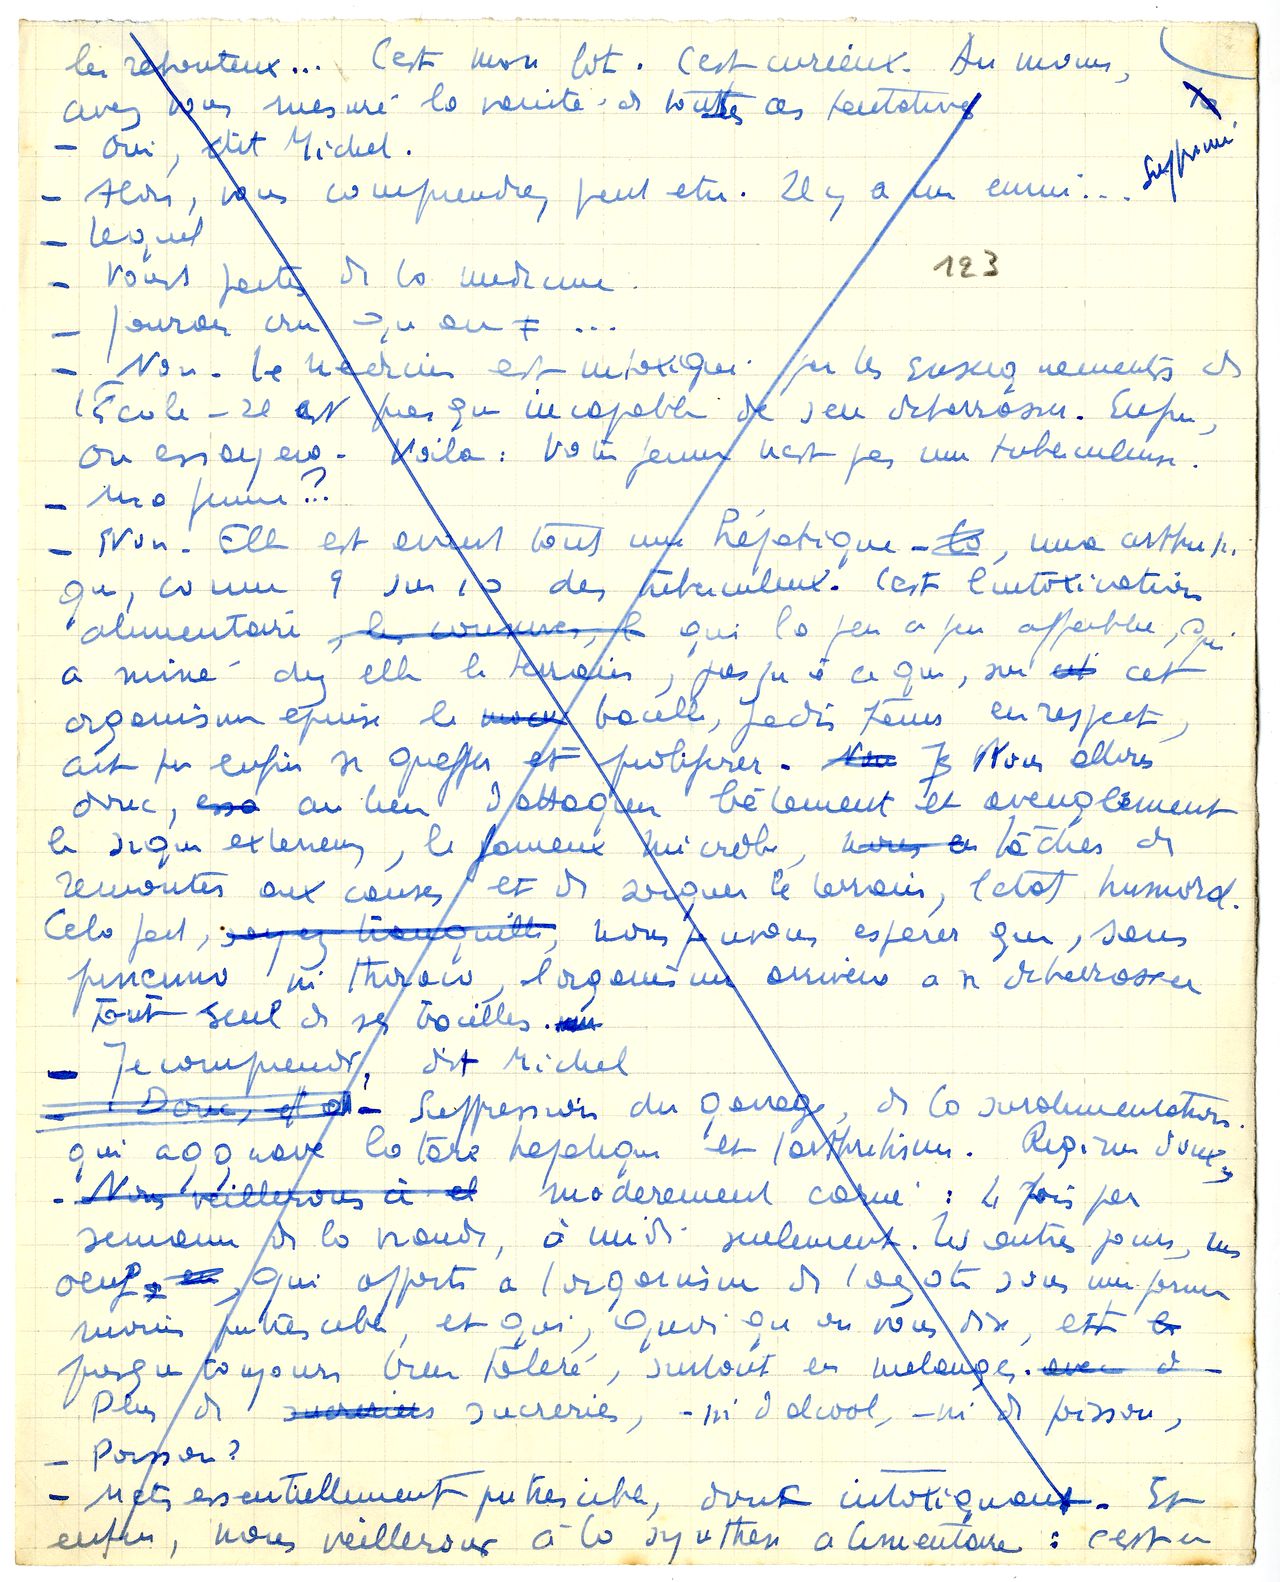 les rebouteux... C'est mon lot. C'est curieux. Au moins,
avez vous mesuré la vanité de toutes ces tentatives
- Oui, dit Michel.
Supprimé
- Alors, vous comprendrez peut etre. Il y a un ennui...
- Lequel
123
- Vous partez de la medecine.
- J'aurais cru qu'au ...
- Non. Le medecin est intoxiqué par les enseignements de
l'Ecole - Il est presque incapable de s'en debarrasser. Enfin,
on essayera. Voila : Votre femme n'est pas une tuberculeuse.
- Ma femme ?..
- Non. Elle est avant tout une hépatique - la, une arthriti-
que, comme 9 sur 10 des tuberculeux. C'est l'intoxication
alimentaire, les conserves, qui l'a peu a peu affaiblie, qui
a miné chez elle le terrain, jusqu'à ce que, sur cet
organisme épuisé le bacille, jadis tenus en respect,
ait pu enfin se greffer et proliferer. Nous allons
donc, au lieu d'attaquer bêtement et aveuglement
le signe exterieur, le fameux microbe, tâcher de
remonter aux causes et de soigner le terrain, l'etat humoral.
Cela fait, soyez tranquille, nous pouvons esperer que, sans
pneumo ni thoraco, l'organisme arrivera a se debarrasser
tout seul de ses bacilles.
- Je comprends, dit Michel
- Donc, Suppression du gavage, de la suralimentation.
qui aggrave la tare hepatique et l'arthritisme. Regime doux,
- Nous veillerons à moderement carné : 4 fois par
semaine de la viande, à midi seulement. Les autres jours, un
oeuf, qui apporte a l'organisme de l'azote sous une forme
moins putrescible, et qui, quoi qu'on vous dise, est
presque toujours bien toleré, surtout en melanges. avec d
Plus de sucreries sucreries, - ni d'alcool, - ni de poisson,
- Poisson ?
- Mets essentiellement putrescible, donc intoxiquant. Et
enfin, nous veillerons à la synthese alimentaire : c'est a